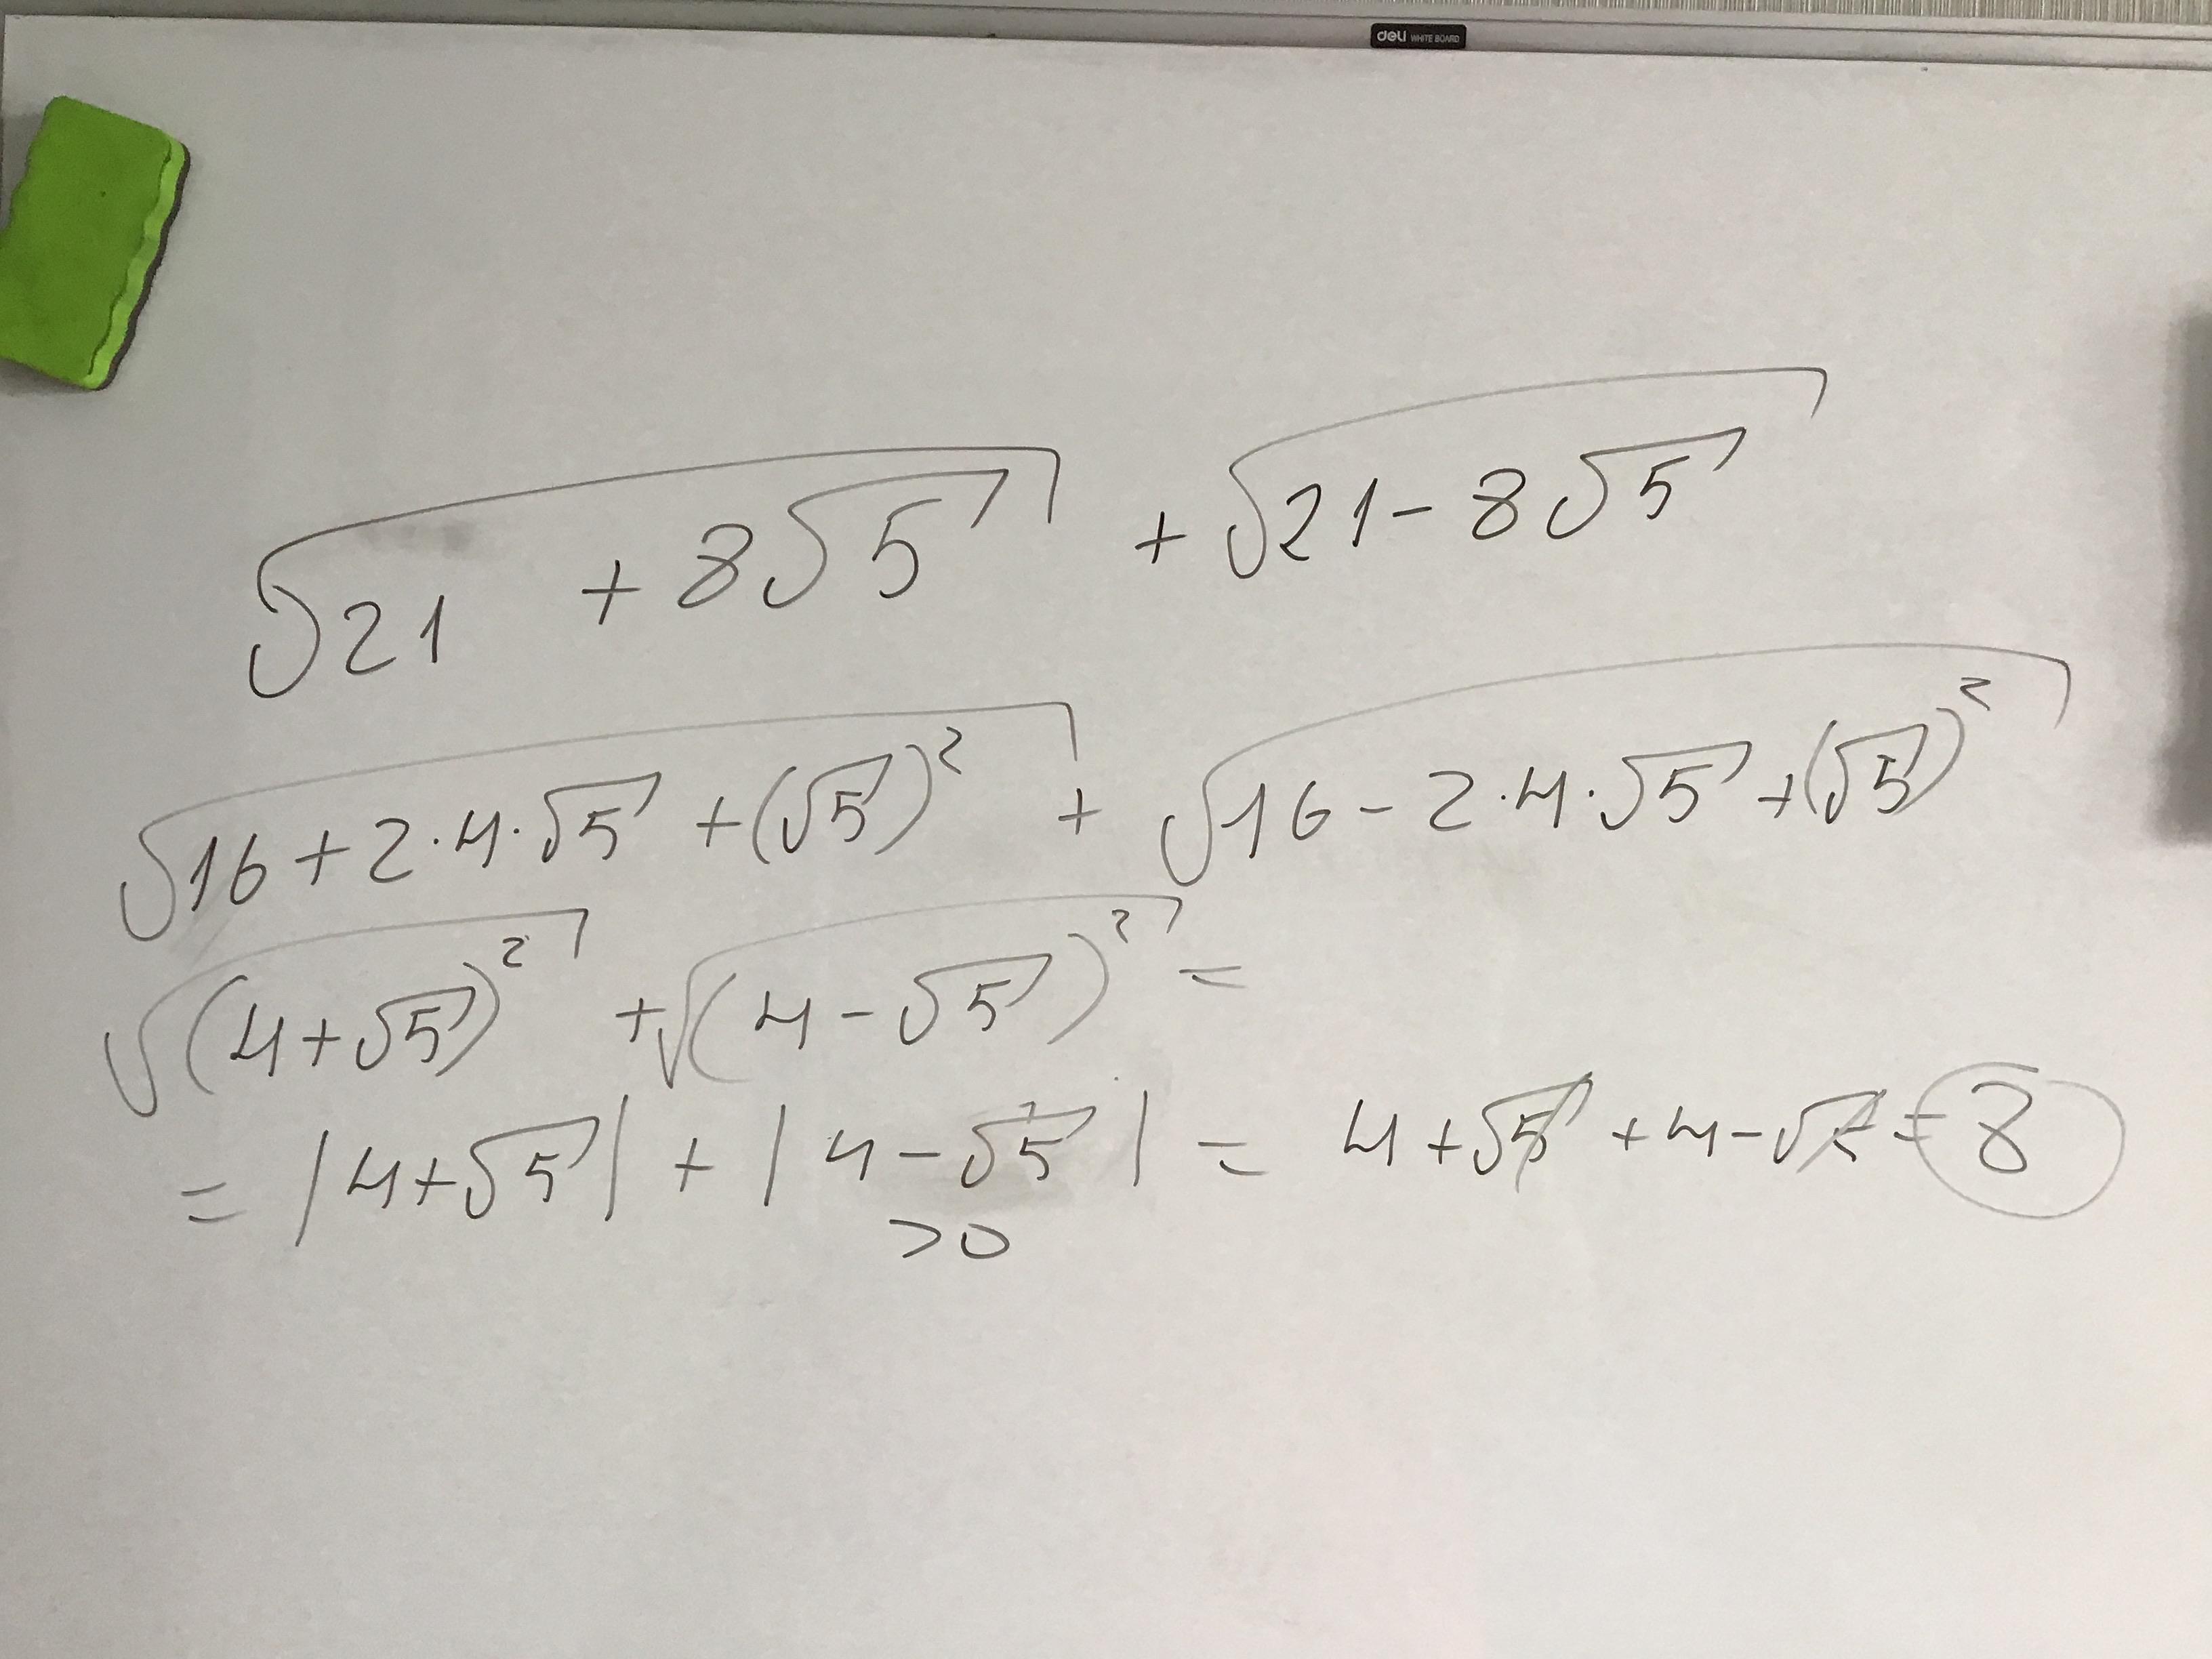 deli WHITE BOARD
√(21 + 8√5) + √(21 - 8√5)
√(16 + 2·4·√5 + (√5)²) + √(16 - 2·4·√5 + (√5)²)
√((4+√5)²) + √((4-√5)²) =
= |4+√5| + |4-√5| = 4+√5 + 4-√5 = 8
>0